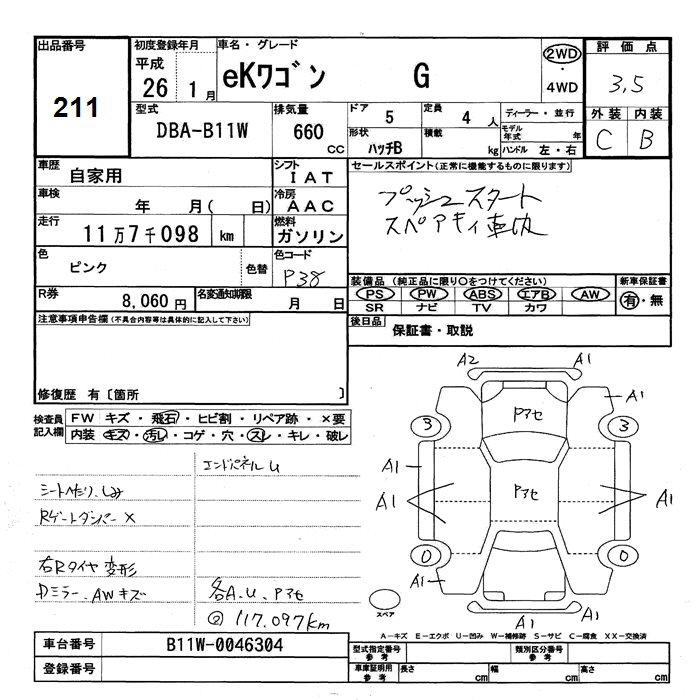 出品番号 初度登録年月 車名・グレード 評価点
211 平成 26 1月 eKワゴン G 2WD 4WD 3.5
型式 排気量 ドア 5 定員 4人 ディーラー・並行 外装 内装
DBA-B11W 660 CC 形状 ハッチB 積載 kg モデル年式 年 ハンドル 左・右 C B
車歴 自家用 シフト IAT セールスポイント(正常に機能するものに限ります)
車検 年 月( 日) 冷房 AAC プッシュスタート
走行 11万7千098 km 燃料 ガソリン スペアキィ車内
色 ピンク 色替 色コード P38
装備品(純正品に限り○をつけてください) 新車保証書
R券 8,060円 名変通知期限 月 日 PS PW ABS エアB AW 有・無
SR ナビ TV カワ
注意事項申告欄(不具合内容等は具体的に記入して下さい) 後日品 保証書・取説
修復歴 有〔箇所 〕
検査員記入欄 FW キズ・飛石・ヒビ割・リペア跡・×要
内装 キズ・汚れ・コゲ・穴・スレ・キレ・破レ
エンドパネルU
シートへたり、しみ
Rゲートダンパー×
右Rタイヤ変形
Dミラー、AWキズ 各A.U.Pアセ
② 117,097km
A2 A1
A1
Pアセ
3 3
A1 A1
A1 Pアセ A1
0 0
A1
A1
スペア
A-キズ E-エクボ U-凹み W-補修跡 S-サビ C-腐食 XX-交換済
車台番号 B11W-0046304 型式指定番号 参考 類別区分番号 参考
登録番号 車庫証明用 参考 長さ cm 幅 cm 高さ cm